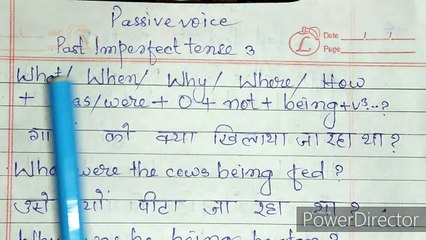 Passive voice
Past Imperfect tense 3
Date / /
Page
L
What/ When/ Why/ Where/ How
+ as/were + O + not + being + v3..?
को क्या खिलाया जा रहा था?
What were the cows being fed?
उसे पीटा जा रहा था?
PowerDirector